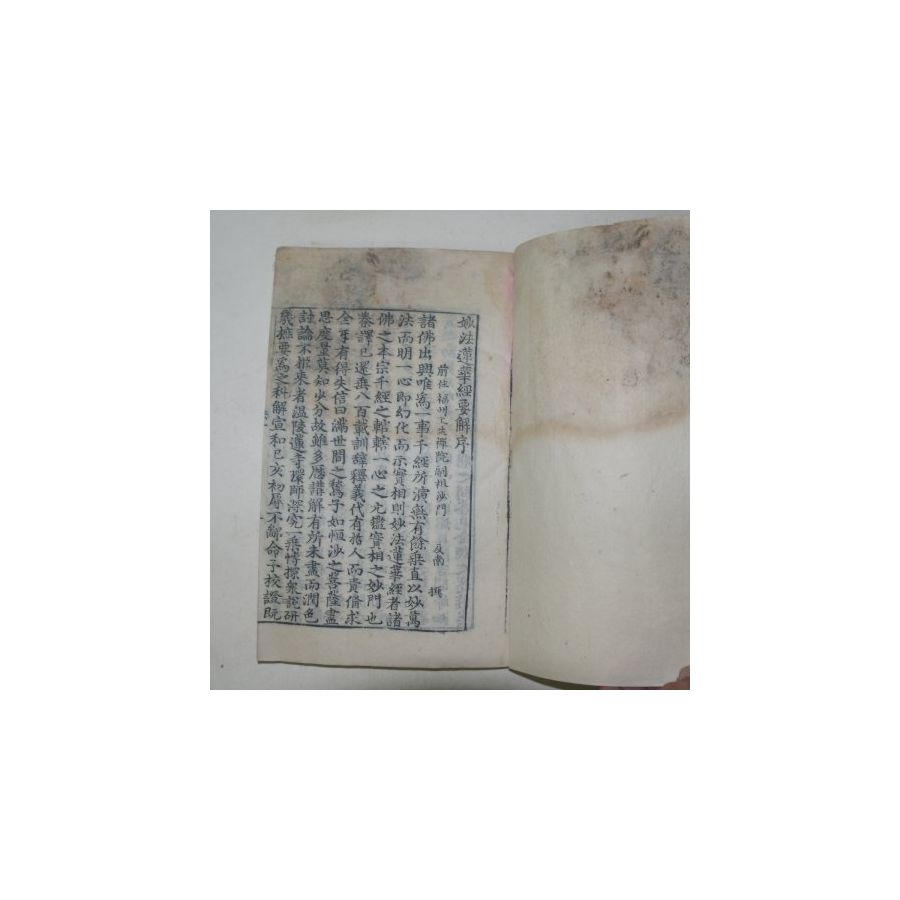 妙法蓮華經要解序
前住福州上生禪院嗣祖沙門 及南 撰
諸佛出興唯爲一事千經所演無有餘乘直以妙萬
法而明一心即幻化而示實相則妙法蓮華經者諸
佛之本宗千經之轄轄一心之元鑑實相之妙門也
秦譯已還垂八百載訓辭釋義代有哲人而責備求
全互有得失信曰滿世間之鶖子如恒沙之菩薩盡
思度量莫知少分故雖多歷講解有所未盡而潤色
討論不拒來者溫陵蓮寺環師深究一乘愽探衆說研
幾摭要爲之科解宣和己亥初屬不鄙命予校證旣